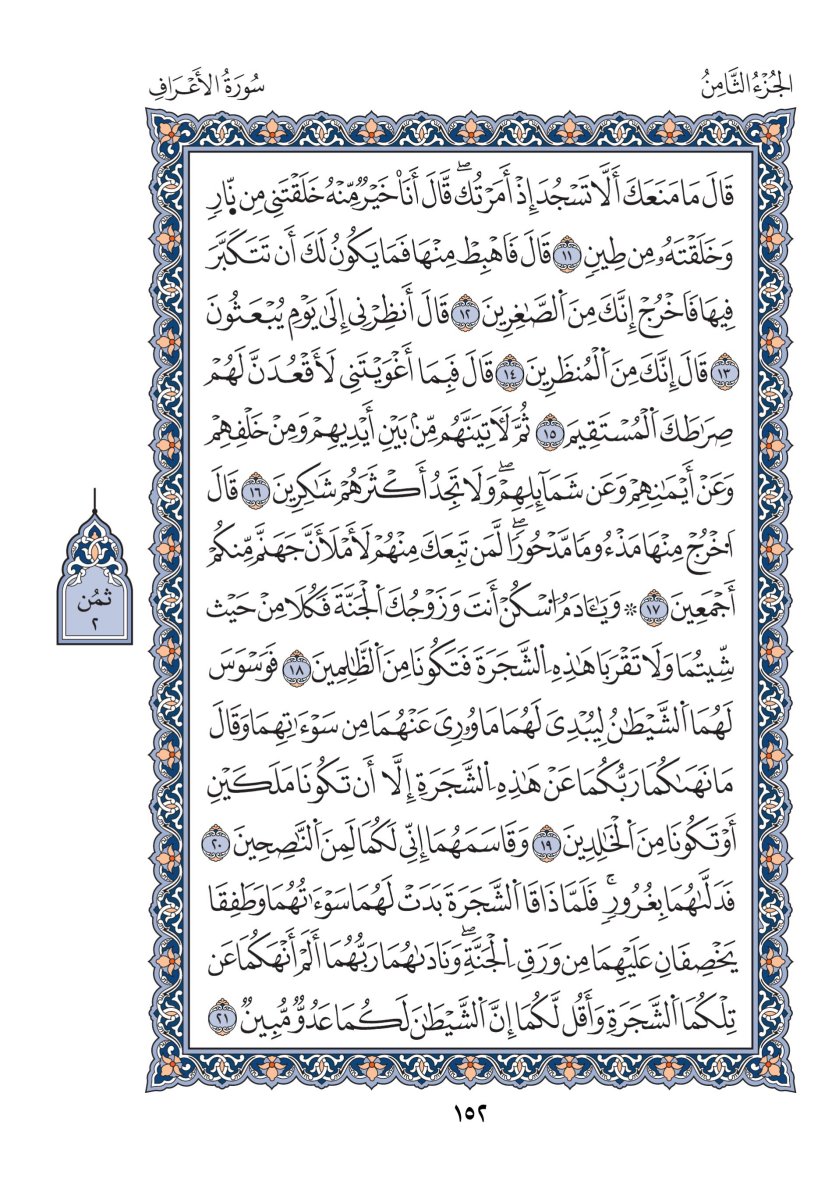 الجُزْءُ الثَّامِنُ
سُورَةُ الأَعْرَافِ
قَالَ مَا مَنَعَكَ أَلَّا تَسْجُدَ إِذْ أَمَرْتُكَۖ قَّالَ أَنَا۠ خَيْرٌ مِّنْهُ خَلَقْتَنِي مِن نّ۪ارٍ
وَخَلَقْتَهُۥ مِن طِينٍ ١١ قَالَ فَاَهْبِطْ مِنْهَا فَمَا يَكُونُ لَكَ أَن تَتَكَبَّرَ
فِيهَا فَاَخْرُجْ إِنَّكَ مِنَ اَلصَّٰغِرِينَ ١٢ قَالَ أَنظِرْنِي إِلَىٰ يَوْمِ يُبْعَثُونَ
١٣ قَالَ إِنَّكَ مِنَ اَلْمُنظَرِينَ ١٤ قَالَ فَبِمَا أَغْوَيْتَنِي لَأَقْعُدَنَّ لَهُمْ
صِرَٰطَكَ اَلْمُسْتَقِيمَ ١٥ ثُمَّ لَأٓتِيَنَّهُم مِّنۢ بَيْنِ أَيْدِيهِمْ وَمِنْ خَلْفِهِمْ
وَعَنْ أَيْمَٰنِهِمْ وَعَن شَمَآئِلِهِمْۖ وَلَا تَجِدُ أَكْثَرَهُمْ شَٰكِرِينَ ١٦ قَالَ
اَخْرُجْ مِنْهَا مَذْءُومًا مَّدْحُورًاۖ لَّمَن تَبِعَكَ مِنْهُمْ لَأَمْلَأَنَّ جَهَنَّم مِّنكُمْ
أَجْمَعِينَ ١٧ ۞ وَيَٰٓـَٔادَمُ اُسْكُنْ أَنتَ وَزَوْجُكَ اَلْجَنَّةَ فَكُلَا مِنْ حَيْث
شِّيتُمَا وَلَا تَقْرَبَا هَٰذِهِ اِلشَّجَرَةَ فَتَكُونَا مِنَ اَلظَّٰلِمِينَ ١٨ فَوَسْوَسَ
لَهُمَا اَلشَّيْطَٰنُ لِيُبْدِيَ لَهُمَا مَا وُۥرِيَ عَنْهُمَا مِن سَوْءَٰتِهِمَا وَقَالَ
مَا نَهَىٰكُمَا رَبُّكُمَا عَنْ هَٰذِهِ اِلشَّجَرَةِ إِلَّا أَن تَكُونَا مَلَكَيْنِ
أَوْ تَكُونَا مِنَ اَلْخَٰلِدِينَ ١٩ وَقَاسَمَهُمَا إِنِّي لَكُمَا لَمِنَ اَلنَّٰصِحِينَ ٢٠
فَدَلَّىٰهُمَا بِغُرُورٍۚ فَلَمَّا ذَاقَا اَلشَّجَرَةَ بَدَتْ لَهُمَا سَوْءَٰتُهُمَا وَطَفِقَا
يَخْصِفَانِ عَلَيْهِمَا مِن وَرَقِ اِلْجَنَّةِۖ وَنَادَىٰهُمَا رَبُّهُمَا أَلَمْ أَنْهَكُمَا عَن
تِلْكُمَا اَلشَّجَرَةِ وَأَقُل لَّكُمَا إِنَّ اَلشَّيْطَٰنَ لَكُمَا عَدُوٌّ مُّبِينٌ ٢١
ثُمُن
٢
١٥٢